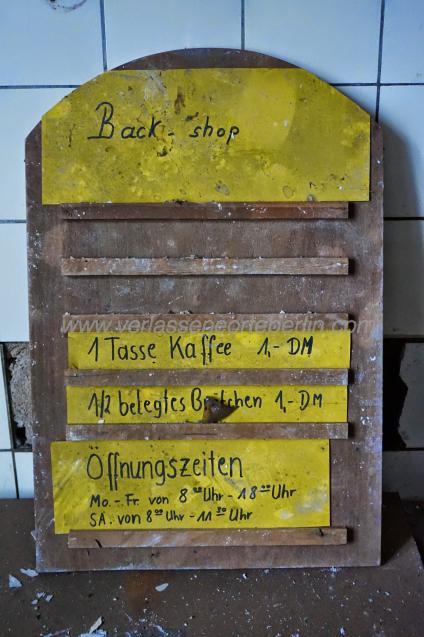 Back-shop
www.verlasseneorteberlin.com
1 Tasse Kaffee 1,- DM
1/2 belegtes Brötchen 1,- DM
Öffnungszeiten
Mo.-Fr. von 8⁰⁰Uhr-18⁰⁰Uhr
SA. von 8⁰⁰Uhr-11³⁰Uhr